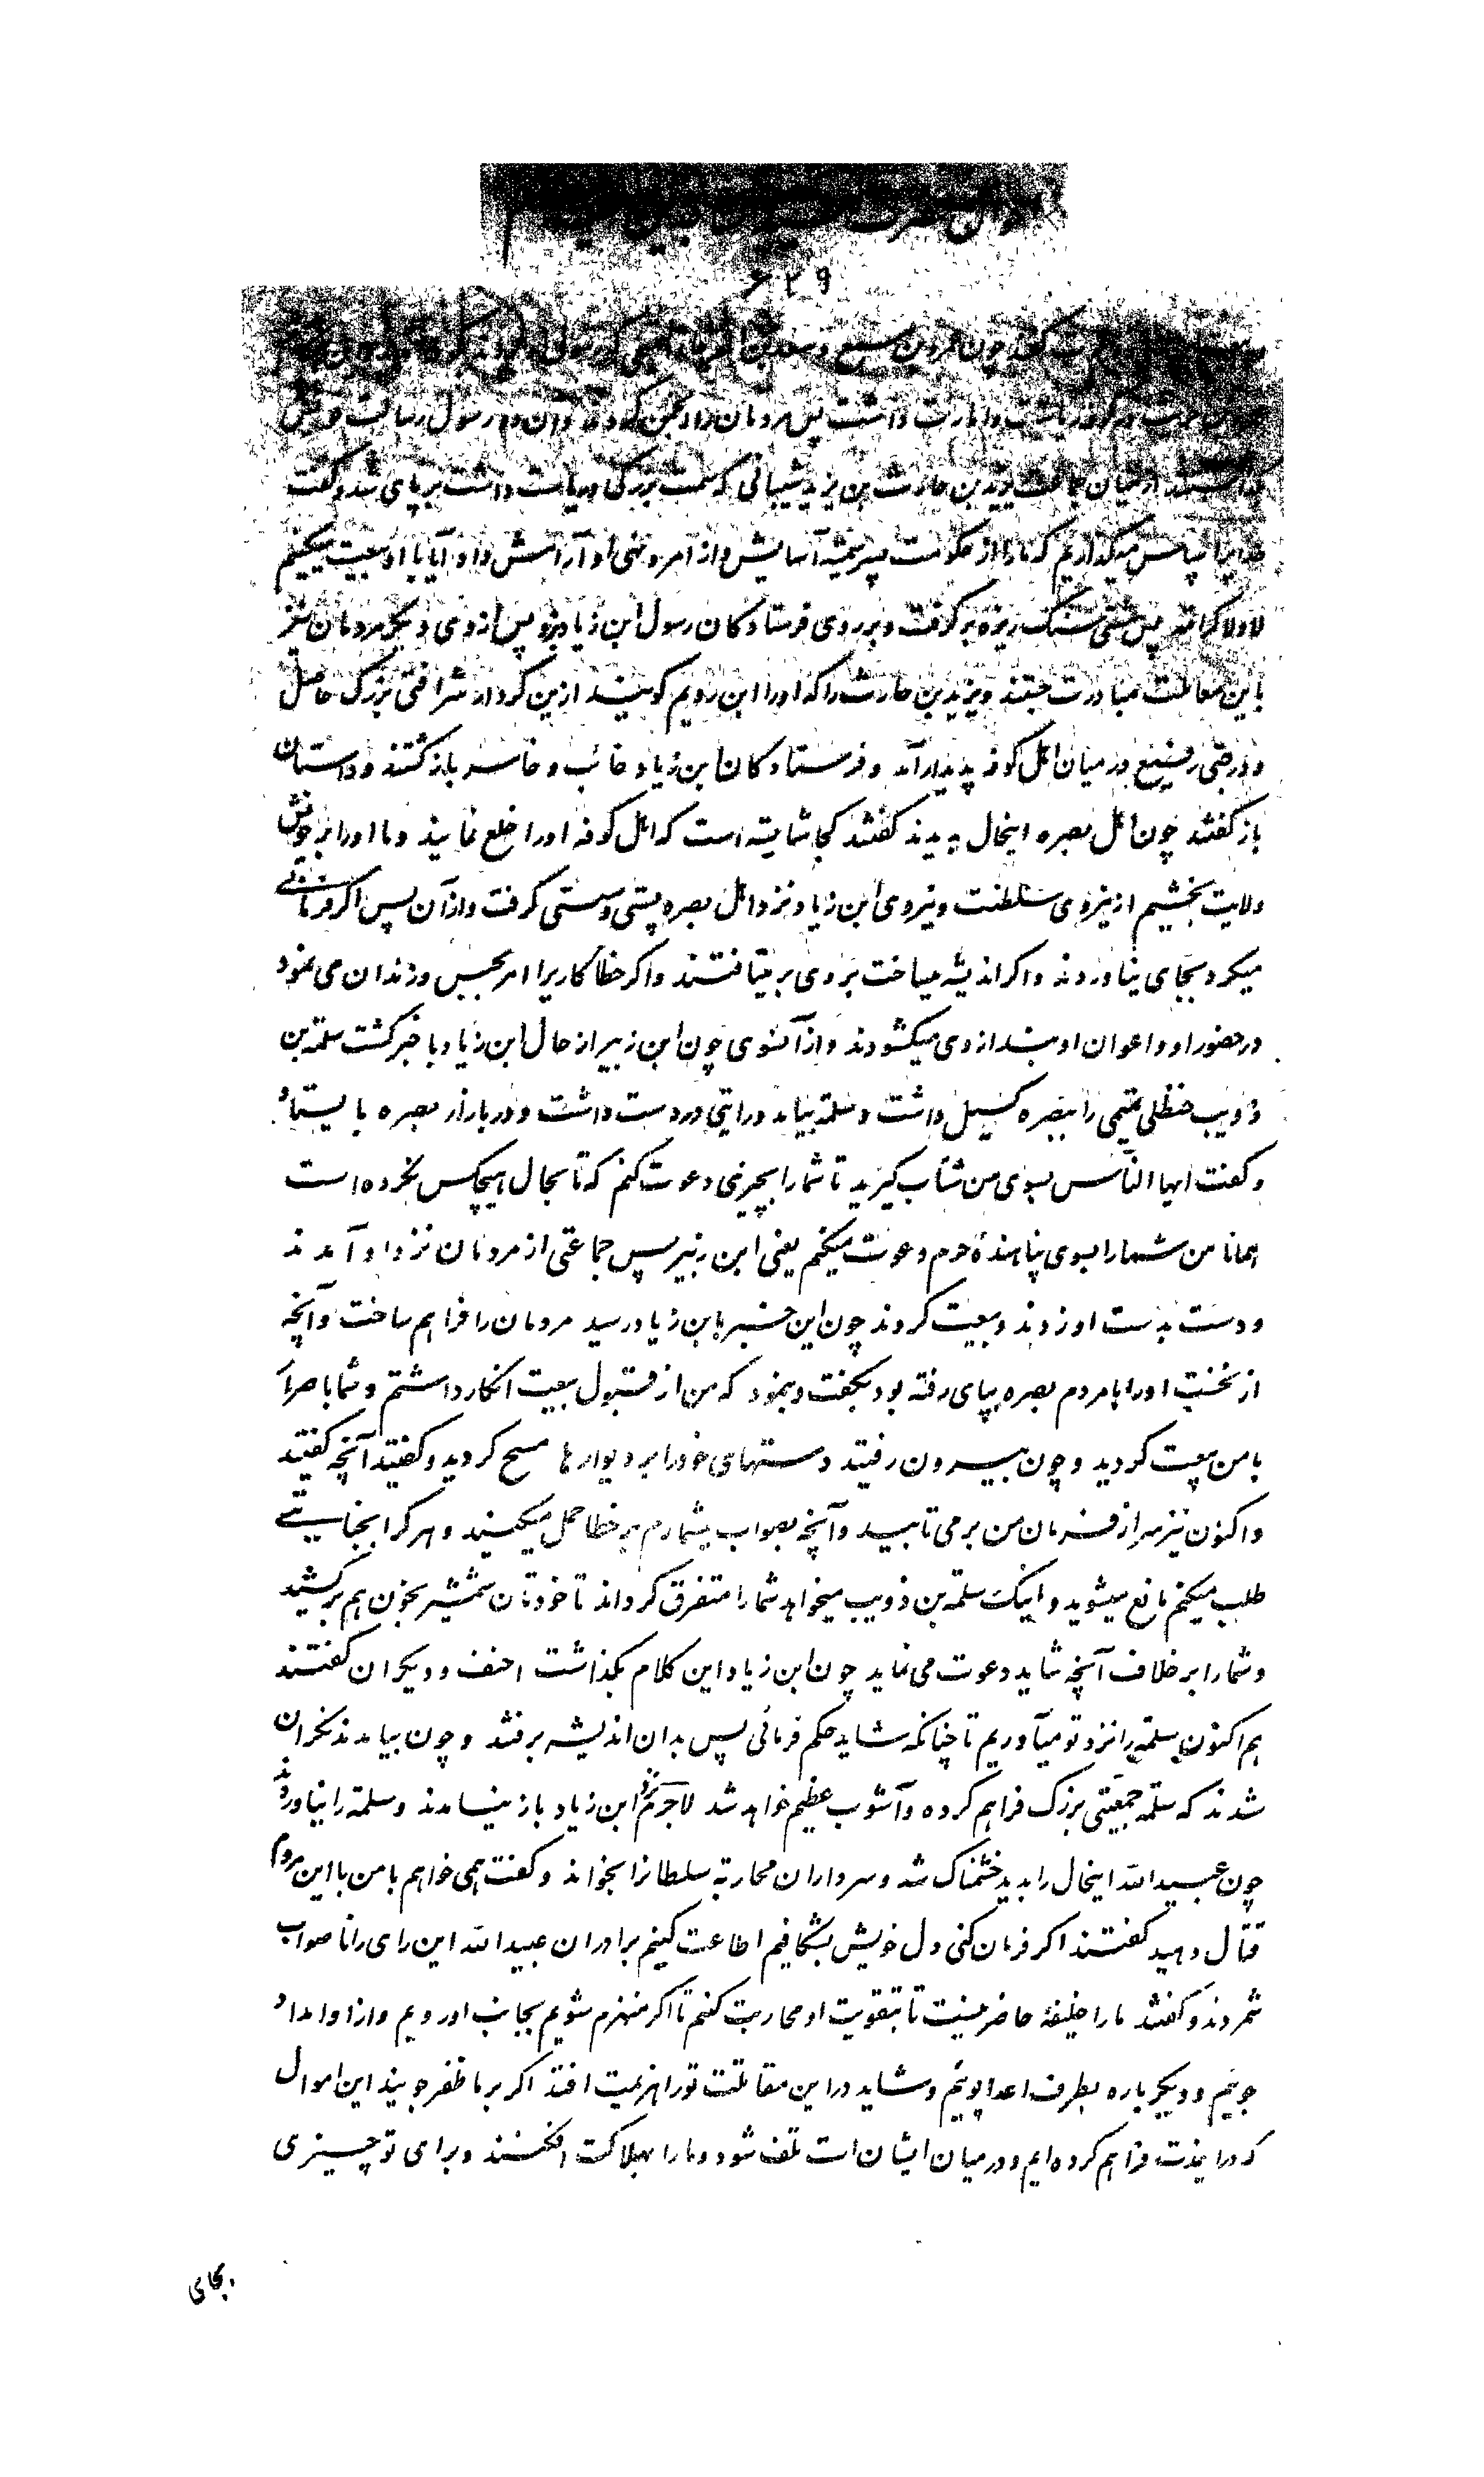 ۶۲۹
چون عمرو بن مسمع و سعد بن
داشت پس مردمان را انجمن کردند و آن دو رسول رسالت خویش
از میان جماعت یزید بن حارث بن یزید شیبانی که سمت بزرگی و ریاست داشت بر پای شد و گفت
خدایرا سپاس میگذاریم که ما را از حکومت پسر سمیه آسایش و از امر و نهی او آرامش داد آیا با او بیعت میکنیم
لا ولا کرامة پس مشتی سنگ ریزه بر گرفت و بر روی فرستادگان رسول ابن زیاد بزد پس از وی دیگر مردمان نیز
باین معاملت مبادرت جستند و یزید بن حارث را که او را ابن رویم گویند ازین کردار شرافتی بزرگ حاصل
و درجتی رفیع در میان اهل کوفه پدیدار آمد و فرستادگان ابن زیاد خائب و خاسر باز گشتند و داستان
باز گفتند چون اهل بصره اینحال بدیدند گفتند کجا شایسته است که اهل کوفه او را خلع نمایند و ما او را بر خویش
ولایت بخشیم از نیروی سلطنت و نیروی ابن زیاد نزد اهل بصره پستی و سستی گرفت و از آن پس اگر فرمانی
میکرد بجای نیاوردند و اگر اندیشه میساخت بر وی بر میتافتند و اگر خطا کاریرا امر بحبس و زندان می نمود
در حضور او و اعوان او بند از وی میگشودند و از آنسوی چون ابن زبیر از حال ابن زیاد با خبر گشت سلمة بن
ذویب حنظلی تمیمی را ببصره گسیل داشت و سلمه بیامد و رایتی در دست داشت و در بازار بصره بایستاد
و گفت ایها الناس بسوی من شتاب گیرید تا شما را بچیزی دعوت کنم که تا بحال هیچکس نکرده است
همانا من شما را بسوی پناهندهٔ حرم دعوت میکنم یعنی ابن زبیر پس جماعتی از مردمان نزد او آمدند
و دست بدست او زدند و بیعت کردند چون این خبر بابن زیاد رسید مردمان را فراهم ساخت و آنچه
از نخست او را با مردم بصره بپای رفته بود بگفت و بنمود که من از قبول بیعت انکار داشتم و شما باصرار
با من بیعت کردید و چون بیرون رفتید دستهای خود را بر دیوارها مسح کردید و گفتید آنچه گفتید
و اکنون نیز سر از فرمان من بر می تابید و آنچه بصواب بشمارم بر خطا حمل میکنید و هر کرا بجنایتی
طلب میکنم مانع میشوید و اینک سلمة بن ذویب میخواهد شما را متفرق گرداند تا خودتان شمشیر بخون هم بر کشید
و شما را بر خلاف آنچه شاید دعوت می نماید چون ابن زیاد این کلام بگذاشت احنف و دیگران گفتند
هم اکنون سلمه را نزد تو میآوریم تا چنانکه شاید حکم فرمائی پس بدان اندیشه برفتند و چون بیامدند نگران
شدند که سلمه جمعیتی بزرگ فراهم کرده و آشوب عظیم خواهد شد لاجرم نزد ابن زیاد باز نیامدند و سلمه را نیاوردند
چون عبیدالله اینحال را بدید خشمناک شد و سرداران محاربه سلطانرا بخواند و گفت همی خواهم با من با این مردم
قتال دهید گفتند اگر فرمان کنی دل خویش بشکافیم اطاعت کنیم برادران عبیدالله این رای را ناصواب
شمردند و گفتند ما را خلیفهٔ حاضر نیست تا بتقویت او محاربت کنیم تا اگر منهزم شویم بجانب او رویم و از او امداد
جوئیم و دیگر باره بطرف اعدا پوئیم و شاید در این مقاتلت تو را هزیمت افتد اگر بر ما ظفر جویند این اموال
که در اینمدت فراهم کرده ایم و در میان ایشان است تلف شود و ما را بهلاکت افکنند و برای تو چیزی
بجای